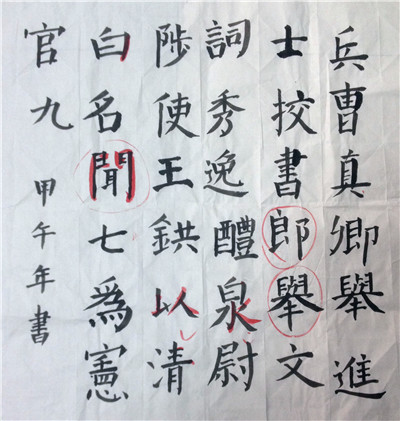 兵曹真卿舉進
士挍書郎舉文
詞秀逸醴泉尉
陟使王鉷以清
白名聞七爲憲
官九 甲午年書